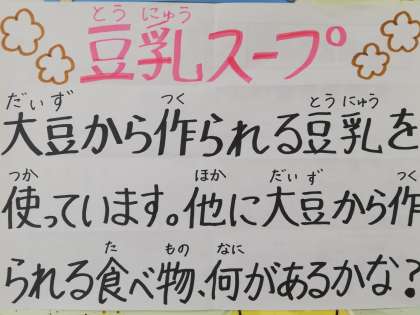 とうにゅう
豆乳スープ
だいず つく とうにゅう
大豆から作られる豆乳を
つか ほか だいず つく
使っています。他に大豆から作
た もの なに
られる食べ物、何があるかな?